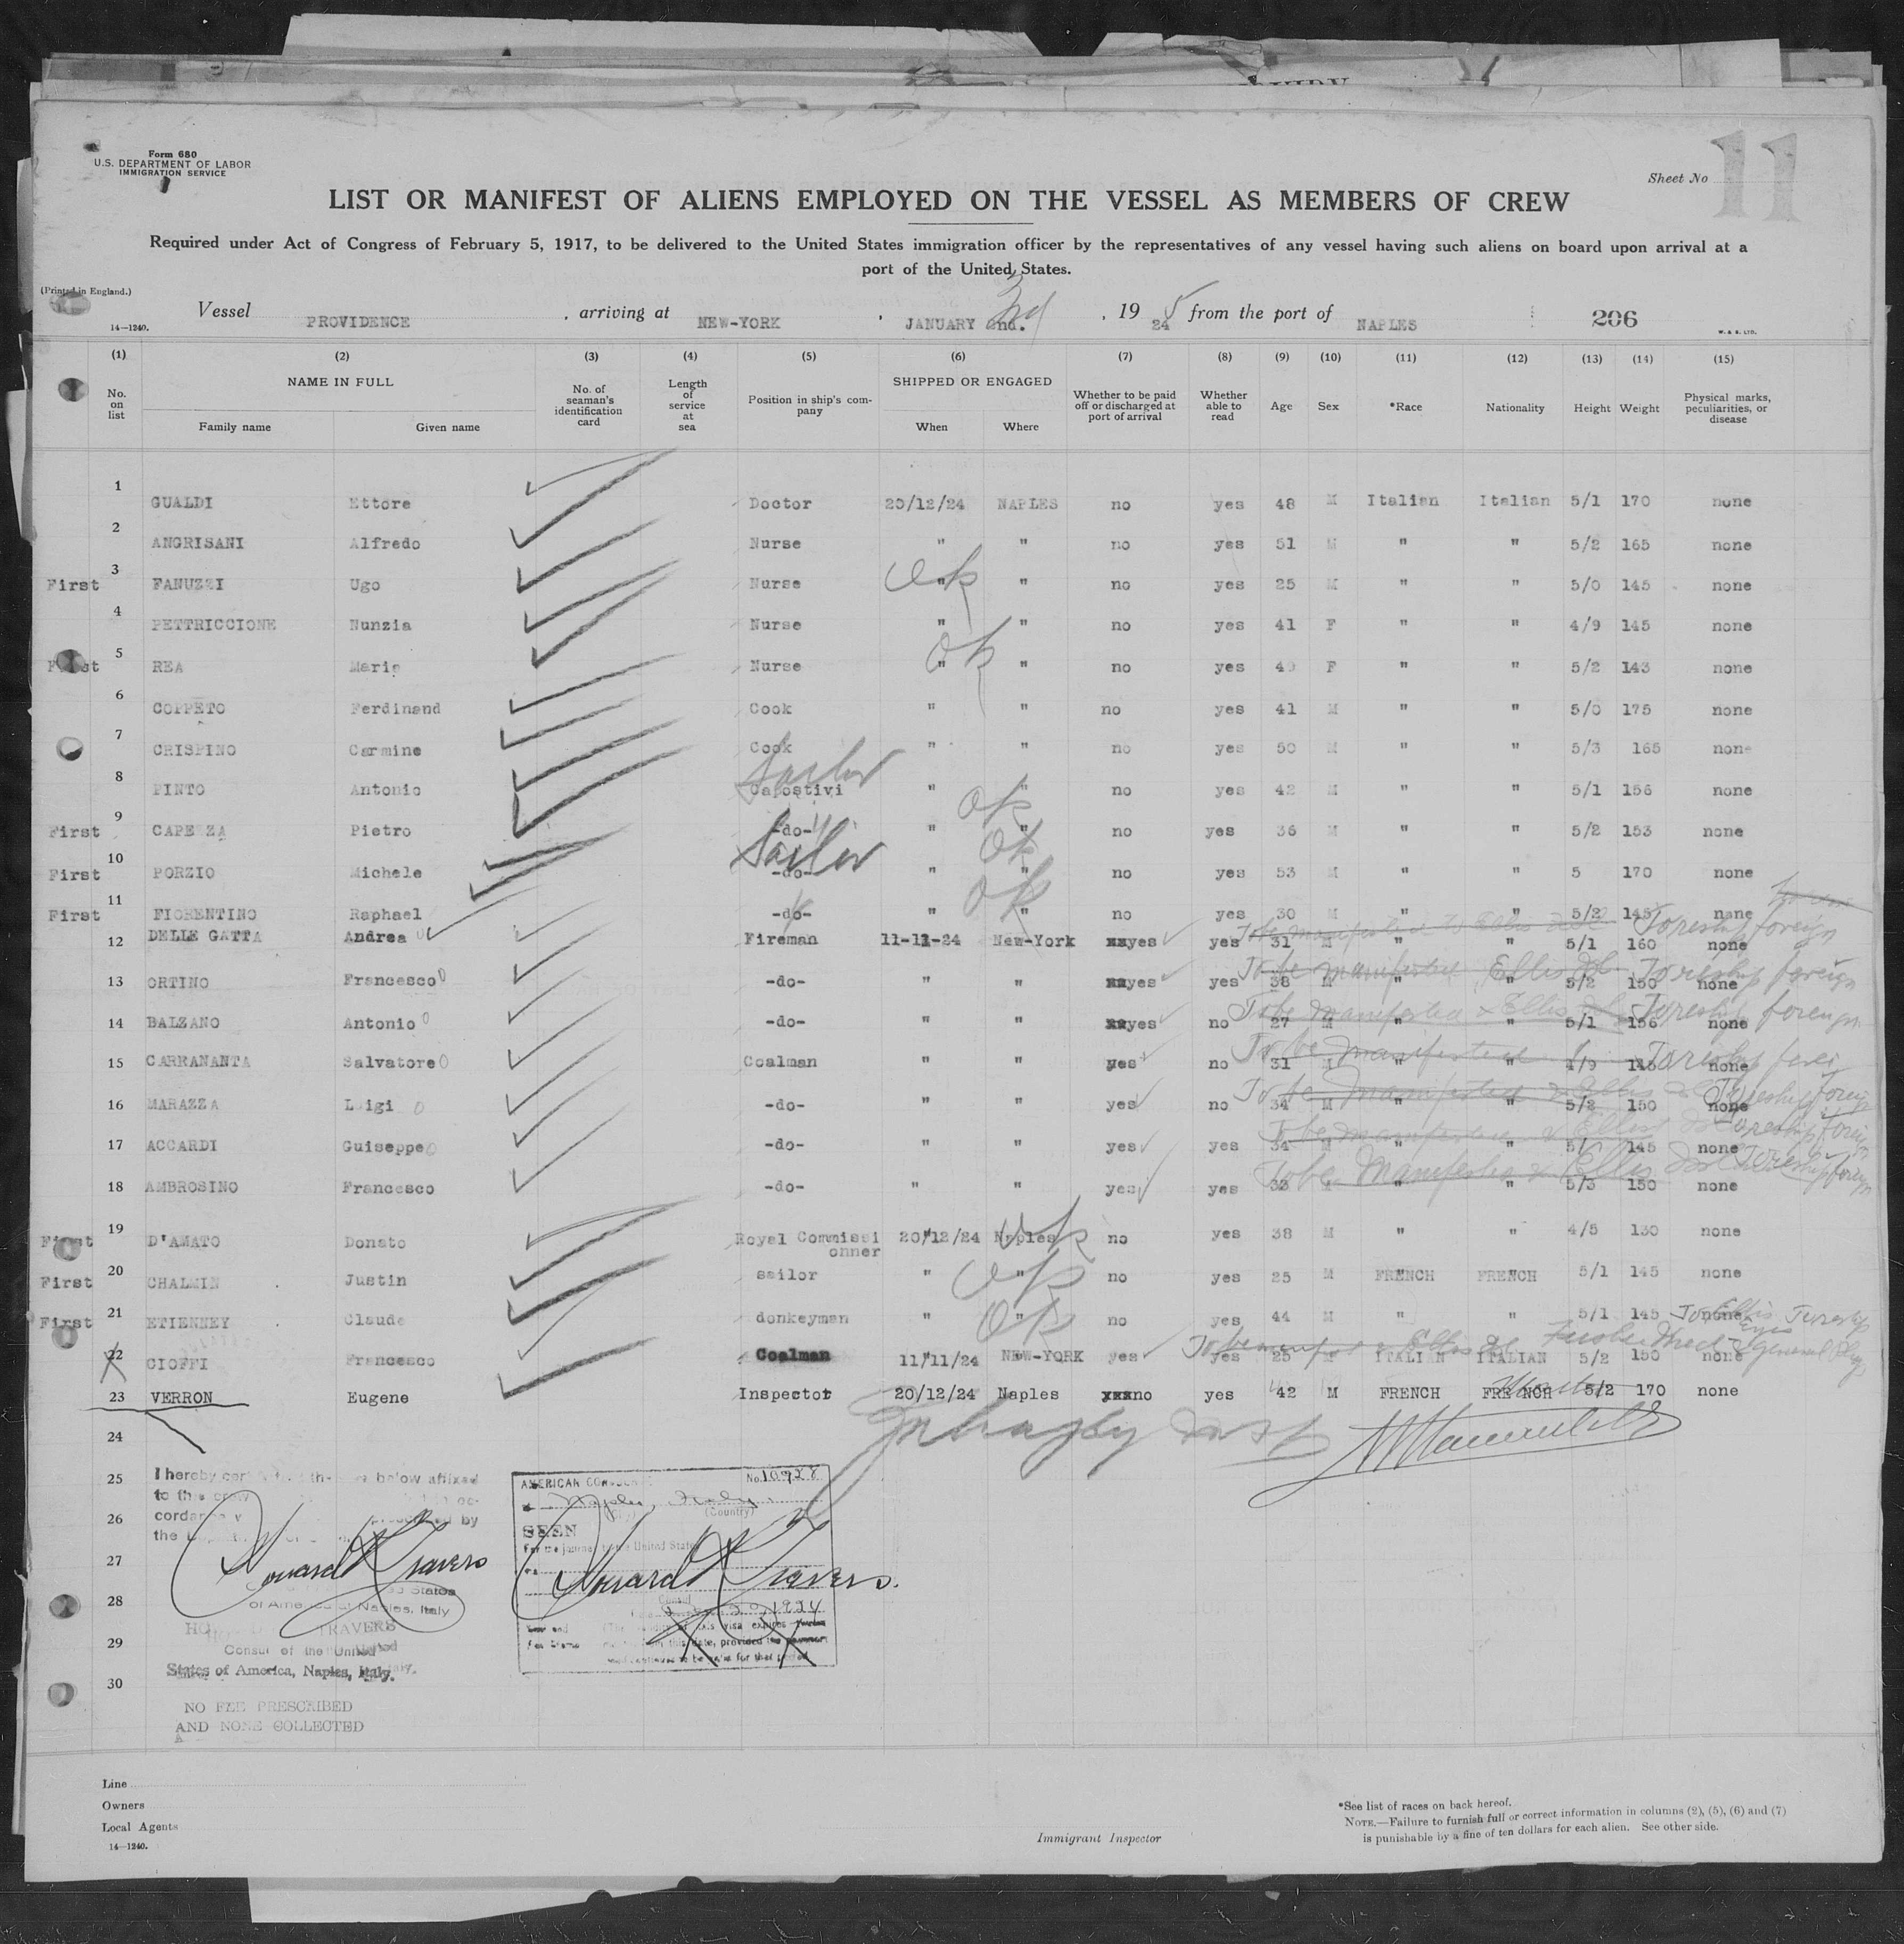 11
Form 680
U.S. DEPARTMENT OF LABOR
IMMIGRATION SERVICE
Sheet No
LIST OR MANIFEST OF ALIENS EMPLOYED ON THE VESSEL AS MEMBERS OF CREW
Required under Act of Congress of February 5, 1917, to be delivered to the United States immigration officer by the representatives of any vessel having such aliens on board upon arrival at a
port of the United States.
(Printed in England.)
Vessel PROVIDENCE, arriving at NEW-YORK, JANUARY 2nd. 3rd, 1924 5 from the port of NAPLES 206
14—1240. W. & S. LTD.
(1) (2) (3) (4) (5) (6) (7) (8) (9) (10) (11) (12) (13) (14) (15)
No. on list NAME IN FULL Family name Given name No. of seaman's identification card Length of service at sea Position in ship's company SHIPPED OR ENGAGED When Where Whether to be paid off or discharged at port of arrival Whether able to read Age Sex *Race Nationality Height Weight Physical marks, peculiarities, or disease
1 GUALDI Ettore Doctor 20/12/24 NAPLES no yes 48 M Italian Italian 5/1 170 none
2 ANGRISANI Alfredo Nurse " " no yes 51 M " " 5/2 165 none
First 3 FANUZZI Ugo Nurse " " ok no yes 25 M " " 5/0 145 none
4 PETTRICCIONE Nunzia Nurse " " no yes 41 F " " 4/9 145 none
First 5 REA Maria Nurse " " ok no yes 40 F " " 5/2 143 none
6 COPPETO Ferdinand Cook " " no yes 41 M " " 5/0 175 none
7 CRISPINO Carmine Cook " " no yes 50 M " " 5/3 165 none
8 PINTO Antonio Capostivi Sailor " " no yes 42 M " " 5/1 156 none
First 9 CAPEZZA Pietro -do- " " ok no yes 36 M " " 5/2 153 none
First 10 PORZIO Michele -do- Sailor " " ok no yes 53 M " " 5 170 none
First 11 FIORENTINO Raphael -do- " " ok no yes 30 M " " 5/2 145 none
12 DELLE GATTA Andrea Fireman 11-11-24 New-York yes yes 31 M " " 5/1 160 none To be manifested Ellis Isl To reship foreign
13 ORTINO Francesco -do- " " yes yes 38 M " " 5/2 150 none To be manifested Ellis Isl To reship foreign
14 BALZANO Antonio -do- " " yes no 27 M " " 5/1 156 none To be manifested Ellis To reship foreign
15 CARRANANTA Salvatore Coalman " " yes no 31 M " " 4/9 145 none To be manifested To reship
16 MARAZZA Luigi -do- " " yes no 34 M " " 5/2 150 none To be manifested Ellis To reship foreign
17 ACCARDI Guiseppe -do- " " yes yes 34 M " " 5/ 145 none To be manifested Ellis Isl To reship foreign
18 AMBROSINO Francesco -do- " " yes yes 33 M " " 5/3 150 none To be Manifested Ellis Isl To reship foreign
First 19 D'AMATO Donato Royal Commissionner 20/12/24 Naples ok no yes 38 M " " 4/5 130 none
First 20 CHALMIN Justin sailor " " ok no yes 25 M FRENCH FRENCH 5/1 145 none
First 21 ETIENNEY Claude donkeyman " " ok no yes 44 M " " 5/1 145 none
22 CIOFFI Francesco Coalman 11/11/24 NEW-YORK yes yes 25 M ITALIAN ITALIAN 5/2 150 none
23 VERRON Eugene Inspector 20/12/24 Naples xxxno yes 42 M FRENCH FRENCH 5/2 170 none
24
25 I hereby below affixed
to this crew
26 by
the
27 Howard K Travers
States
28 of America at Naples, Italy
TRAVERS
29 Consul of the United
States of America, Naples, Italy.
30
NO FEE PRESCRIBED
AND NONE COLLECTED
AMERICAN No. 10928
Naples, Italy
(Country)
SEEN
For the journey to the United States
Howard K Travers.
Consul
20, 1924
visa expires
this date, provided the
to be valid for that period
Line
Owners
Local Agents
14—1240.
Immigrant Inspector
*See list of races on back hereof.
NOTE.—Failure to furnish full or correct information in columns (2), (5), (6) and (7)
is punishable by a fine of ten dollars for each alien. See other side.